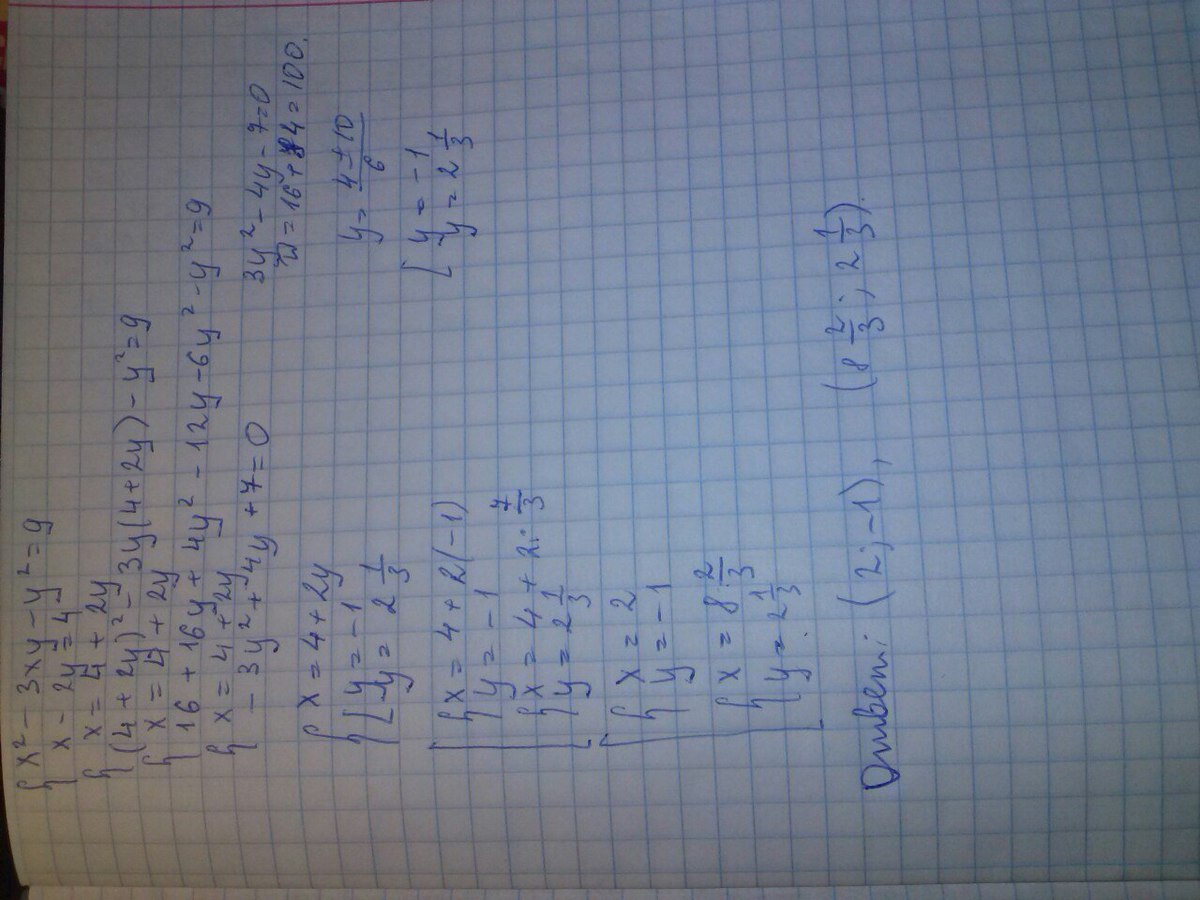 { x² - 3xy - y² = 9
{ x - 2y = 4
{ x = 4 + 2y
{ (4 + 2y)² - 3y(4 + 2y) - y² = 9
{ x = 4 + 2y
{ 16 + 16y + 4y² - 12y - 6y² - y² = 9
{ x = 4 + 2y
{ -3y² + 4y + 7 = 0
3y² - 4y - 7 = 0
D = 16 + 84 = 100.
y = (4 ± 10)/6
[ y = -1
[ y = 2 1/3
{ x = 4 + 2y
{ [ y = -1
{ [ y = 2 1/3
[ { x = 4 + 2(-1)
[ { y = -1
[ { x = 4 + 2 · 7/3
[ { y = 2 1/3
[ { x = 2
[ { y = -1
[ { x = 8 2/3
[ { y = 2 1/3.
Ответ: (2; -1), (8 2/3; 2 1/3).